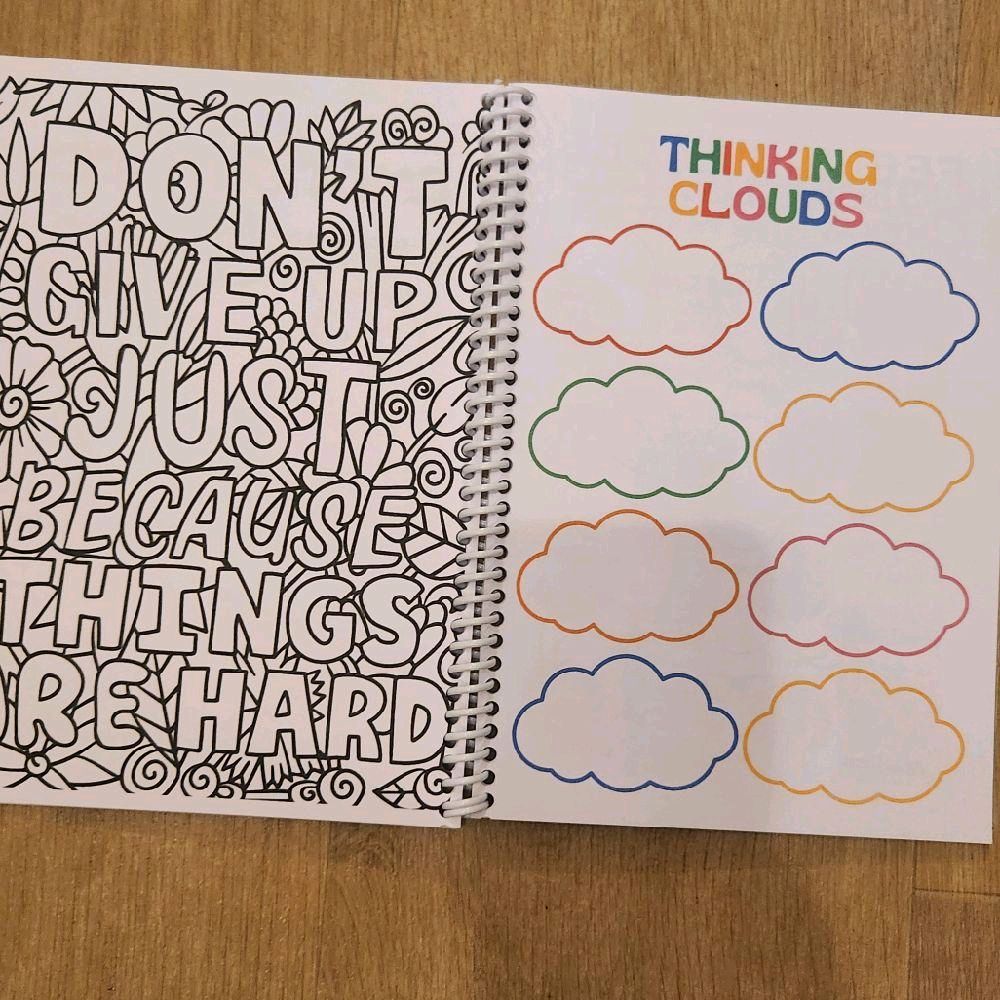 DON'T
GIVE UP
JUST
BECAUSE
THINGS
RE HARD
THINKING
CLOUDS